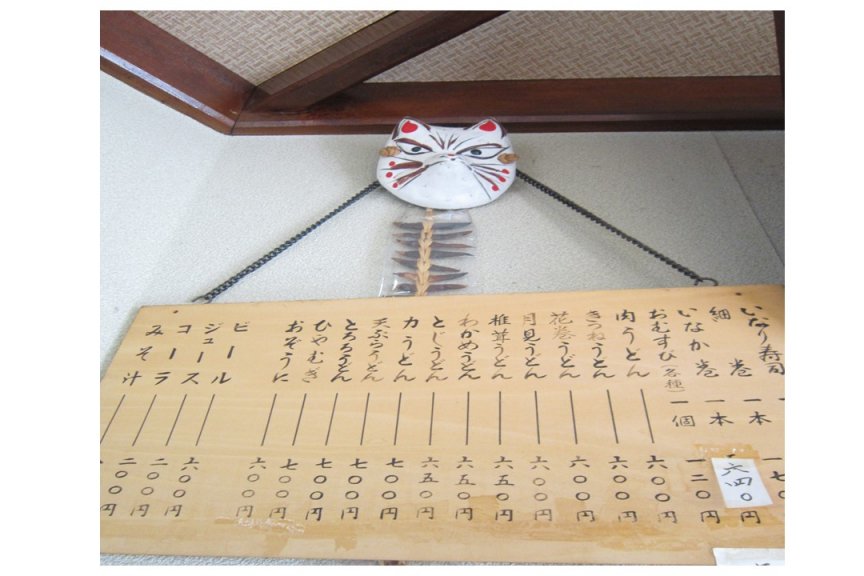 いなり寿司
細巻 一本 一七〇
いなか巻 一本 六四〇円
おむすび（各種）一個 一二〇円
肉うどん 六〇〇円
きつねうどん 六〇〇円
花巻うどん 六〇〇円
月見うどん 六〇〇円
椎茸うどん 六五〇円
わかめうどん 六五〇円
とじうどん 六五〇円
力うどん 七〇〇円
天ぷらうどん 七〇〇円
とろろうどん 七〇〇円
ひやむぎ 七〇〇円
おぞうに 六〇〇円
ビール 六〇〇円
ジュース 二〇〇円
コーラ 二〇〇円
みそ汁 円